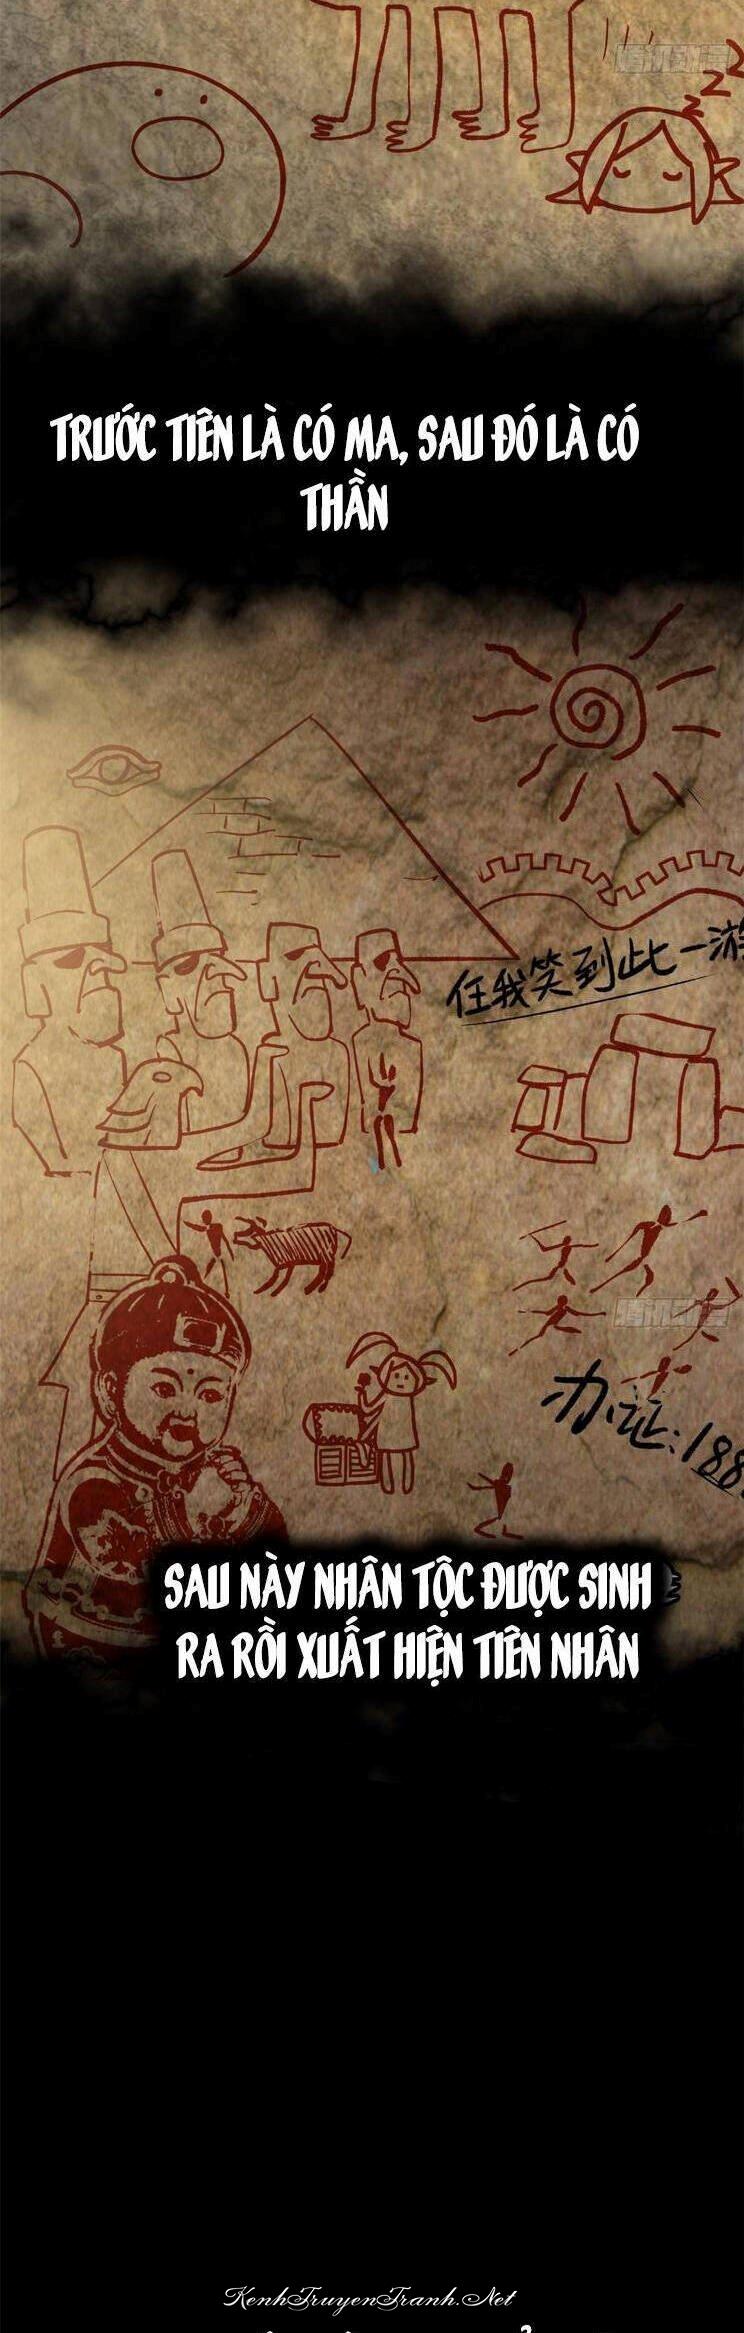 zzz
TRƯỚC TIÊN LÀ CÓ MA, SAU ĐÓ LÀ CÓ
THẦN
任我笑到此一游
办证:188
SAU NÀY NHÂN TỘC ĐƯỢC SINH
RA RỒI XUẤT HIỆN TIÊN NHÂN
KenhTruyenTranh.Net